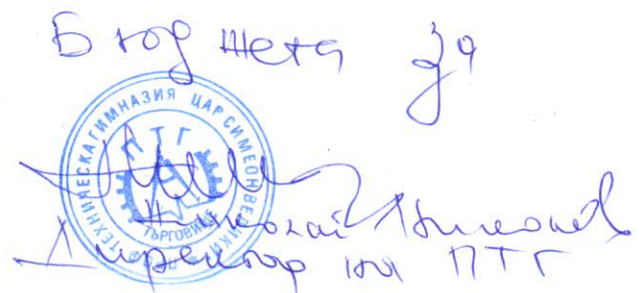 Бюджета за
ТЕХНИЧЕСКА ГИМНАЗИЯ ЦАР СИМЕОН ВЕЛИКИ
ПТГ
ТЪРГОВИЩЕ
Николай
Директор на ПТГ